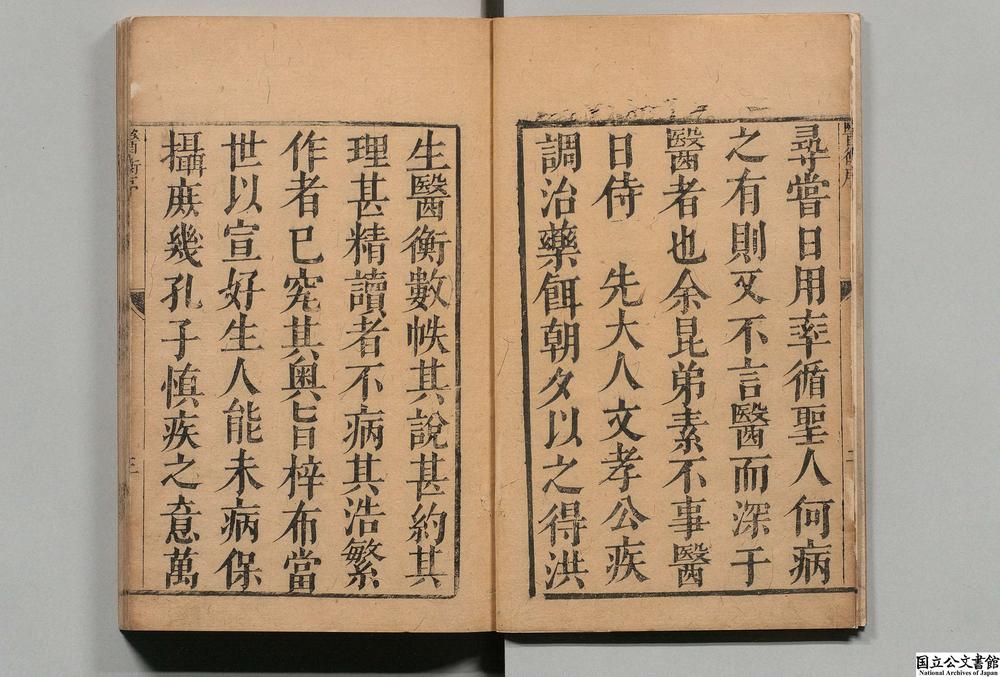 醫衡序
二
尋嘗日用率循聖人何病
之有則又不言醫而深于
醫者也余昆弟素不事醫
日侍　先大人文孝公疾
調治藥餌朝夕以之得洪
生醫衡數帙其說甚約其
理甚精讀者不病其浩繁
作者已究其奧旨梓布當
世以宣好生人能未病保
攝庶幾孔子慎疾之意萬
醫衡序
三
国立公文書館
National Archives of Japan